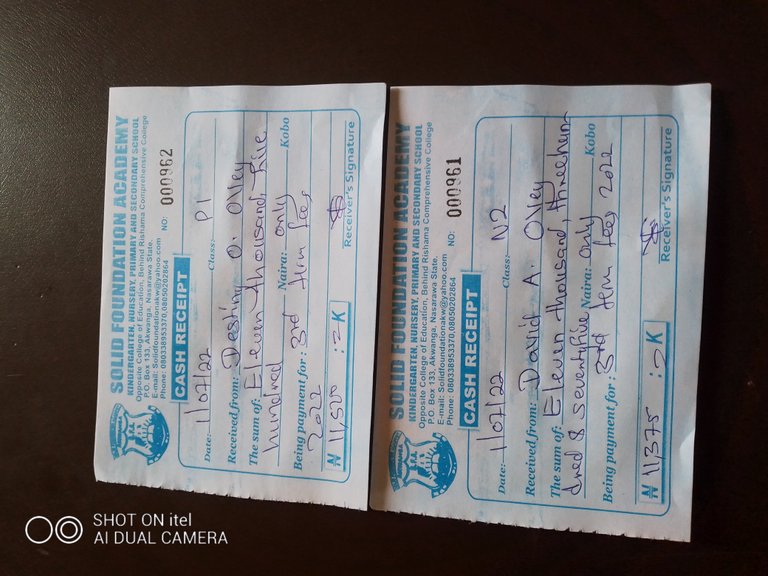 SOLID FOUNDATION ACADEMY
KINDERGARTEN, NURSERY, PRIMARY AND SECONDARY SCHOOL
Opposite College of Education, Behind Rishama Comprehensive College
P.O. Box 133, Akwanga, Nasarawa State.
E-mail: Solidfoundationakw@yahoo.com
Phone: 08033895337,08050202864
CASH RECEIPT NO: 000962
Date: 1/07/22 Class: P1
Received from: Destiny O. Olley
The sum of: Eleven thousand, five
hundred Naira: only Kobo
Being payment for: 3rd term fees
2022
N 11,500 : = K
Receiver's Signature
SOLID FOUNDATION ACADEMY
KINDERGARTEN, NURSERY, PRIMARY AND SECONDARY SCHOOL
Opposite College of Education, Behind Rishama Comprehensive College
P.O. Box 133, Akwanga, Nasarawa State.
E-mail: Solidfoundationakw@yahoo.com
Phone: 08033895337 0,08050202864
CASH RECEIPT NO: 000961
Date: 1/07/22 Class: N2
Received from: David A. Olley
The sum of: Eleven thousand, threehun
dred & seventyfive Naira: only Kobo
Being payment for: 3rd term fees 2022
N 11,375 : = K
Receiver's Signature
SHOT ON itel
AI DUAL CAMERA